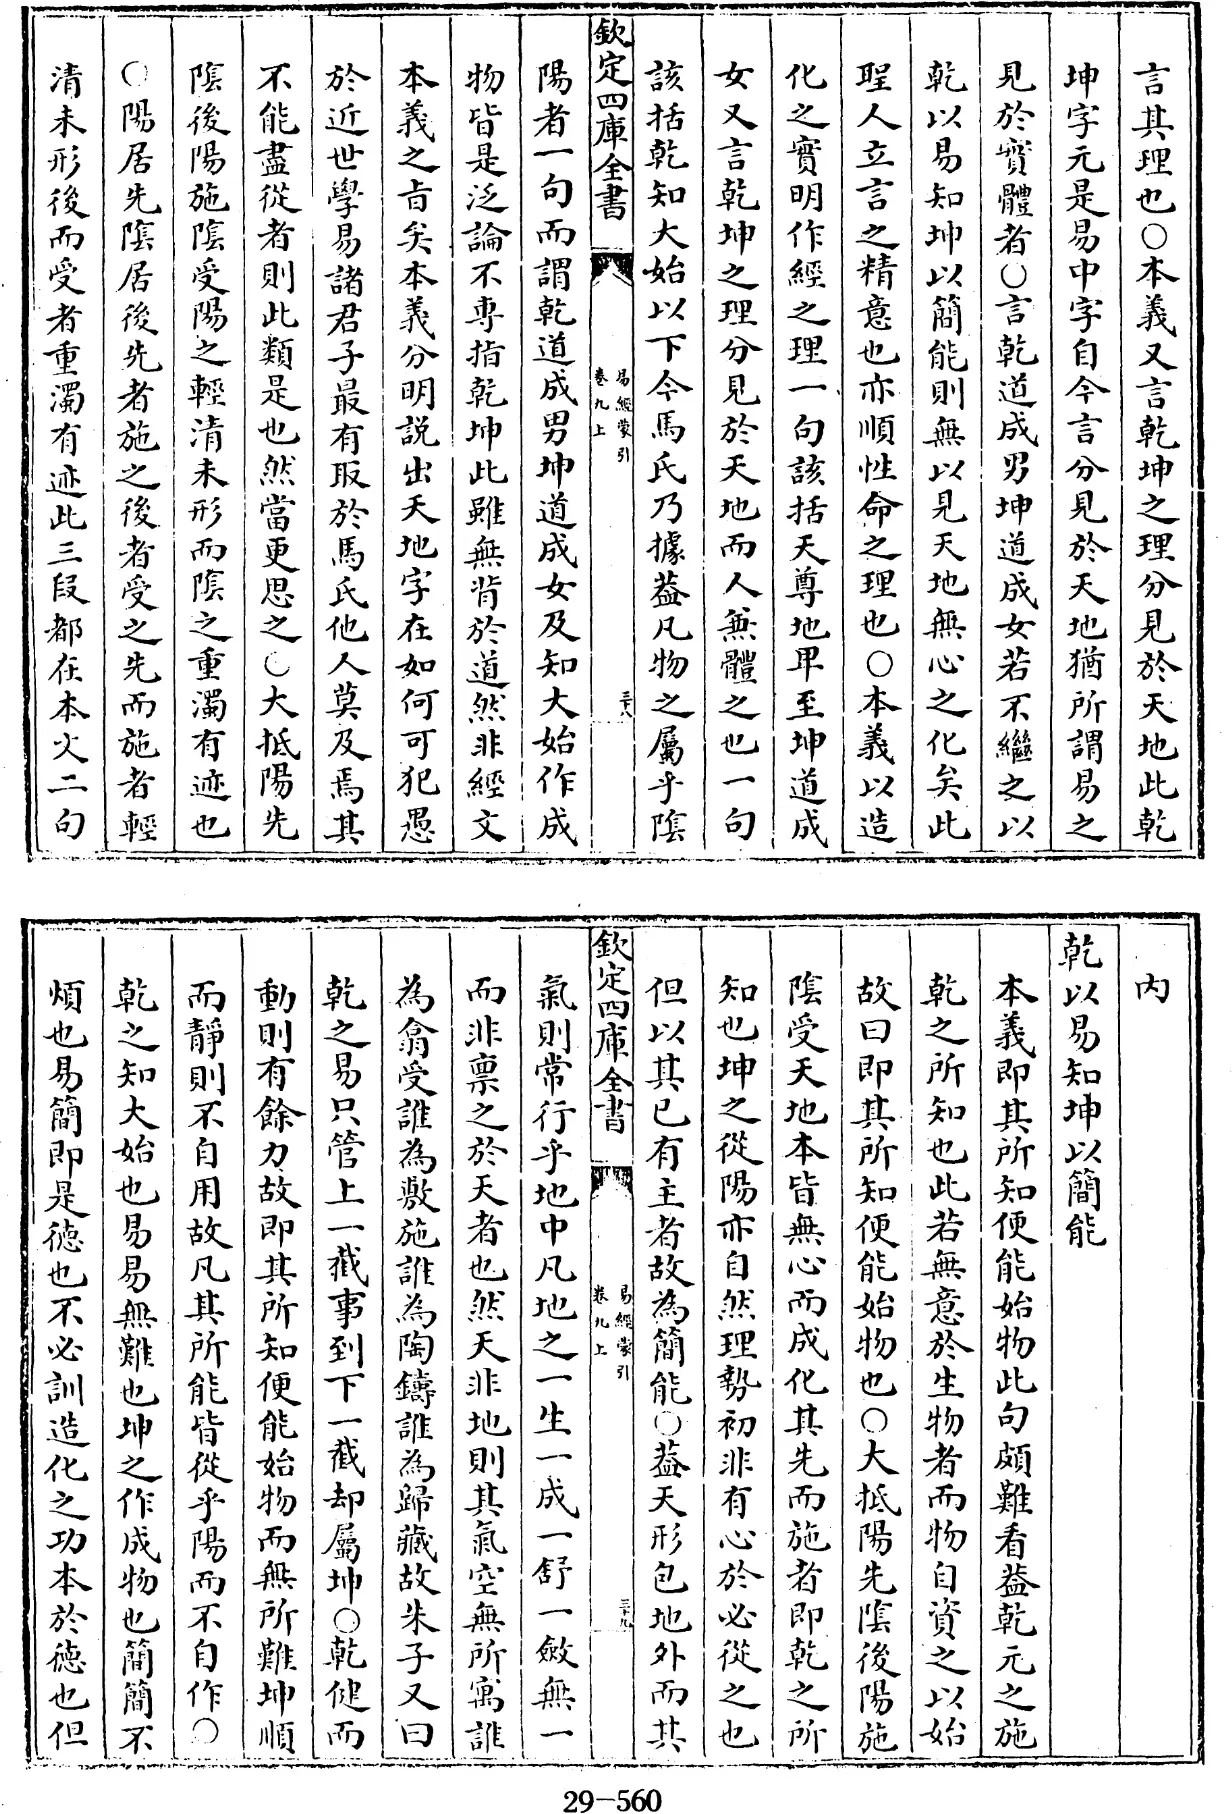 言其理也○本義又言乾坤之理分見於天地此乾
坤字元是易中字自今言分見於天地猶所謂易之
見於實體者○言乾道成男坤道成女若不繼之以
乾以易知坤以簡能則無以見天地無心之化矣此
聖人立言之精意也亦順性命之理也○本義以造
化之實明作經之理一句該括天尊地卑至坤道成
女又言乾坤之理分見於天地而人兼體之也一句
該括乾知大始以下今馬氏乃據葢凡物之屬乎陰
欽定四庫全書
易經蒙引
卷九上
三十八
陽者一句而謂乾道成男坤道成女及知大始作成
物皆是泛論不専指乾坤此雖無背於道然非經文
本義之旨矣本義分明説出天地字在如何可犯愚
於近世學易諸君子最有取於馬氏他人莫及焉其
不能盡從者則此類是也然當更思之○大抵陽先
陰後陽施陰受陽之輕清未形而陰之重濁有迹也
○陽居先陰居後先者施之後者受之先而施者輕
清未形後而受者重濁有迹此三段都在本文二句
内
乾以易知坤以簡能
本義即其所知便能始物此句頗難看葢乾元之施
乾之所知也此若無意於生物者而物自資之以始
故曰即其所知便能始物也○大抵陽先陰後陽施
陰受天地本皆無心而成化其先而施者即乾之所
知也坤之從陽亦自然理勢初非有心於必從之也
但以其已有主者故為簡能○葢天形包地外而其
欽定四庫全書
易經蒙引
卷九上
三十九
氣則常行乎地中凡地之一生一成一舒一斂無一
而非禀之於天者也然天非地則其氣空無所寓誰
為翕受誰為敷施誰為陶鑄誰為歸藏故朱子又曰
乾之易只管上一截事到下一截却屬坤○乾健而
動則有餘力故即其所知便能始物而無所難坤順
而靜則不自用故凡其所能皆從乎陽而不自作○
乾之知大始也易易無難也坤之作成物也簡簡不
煩也易簡即是德也不必訓造化之功本於德也但
29-560